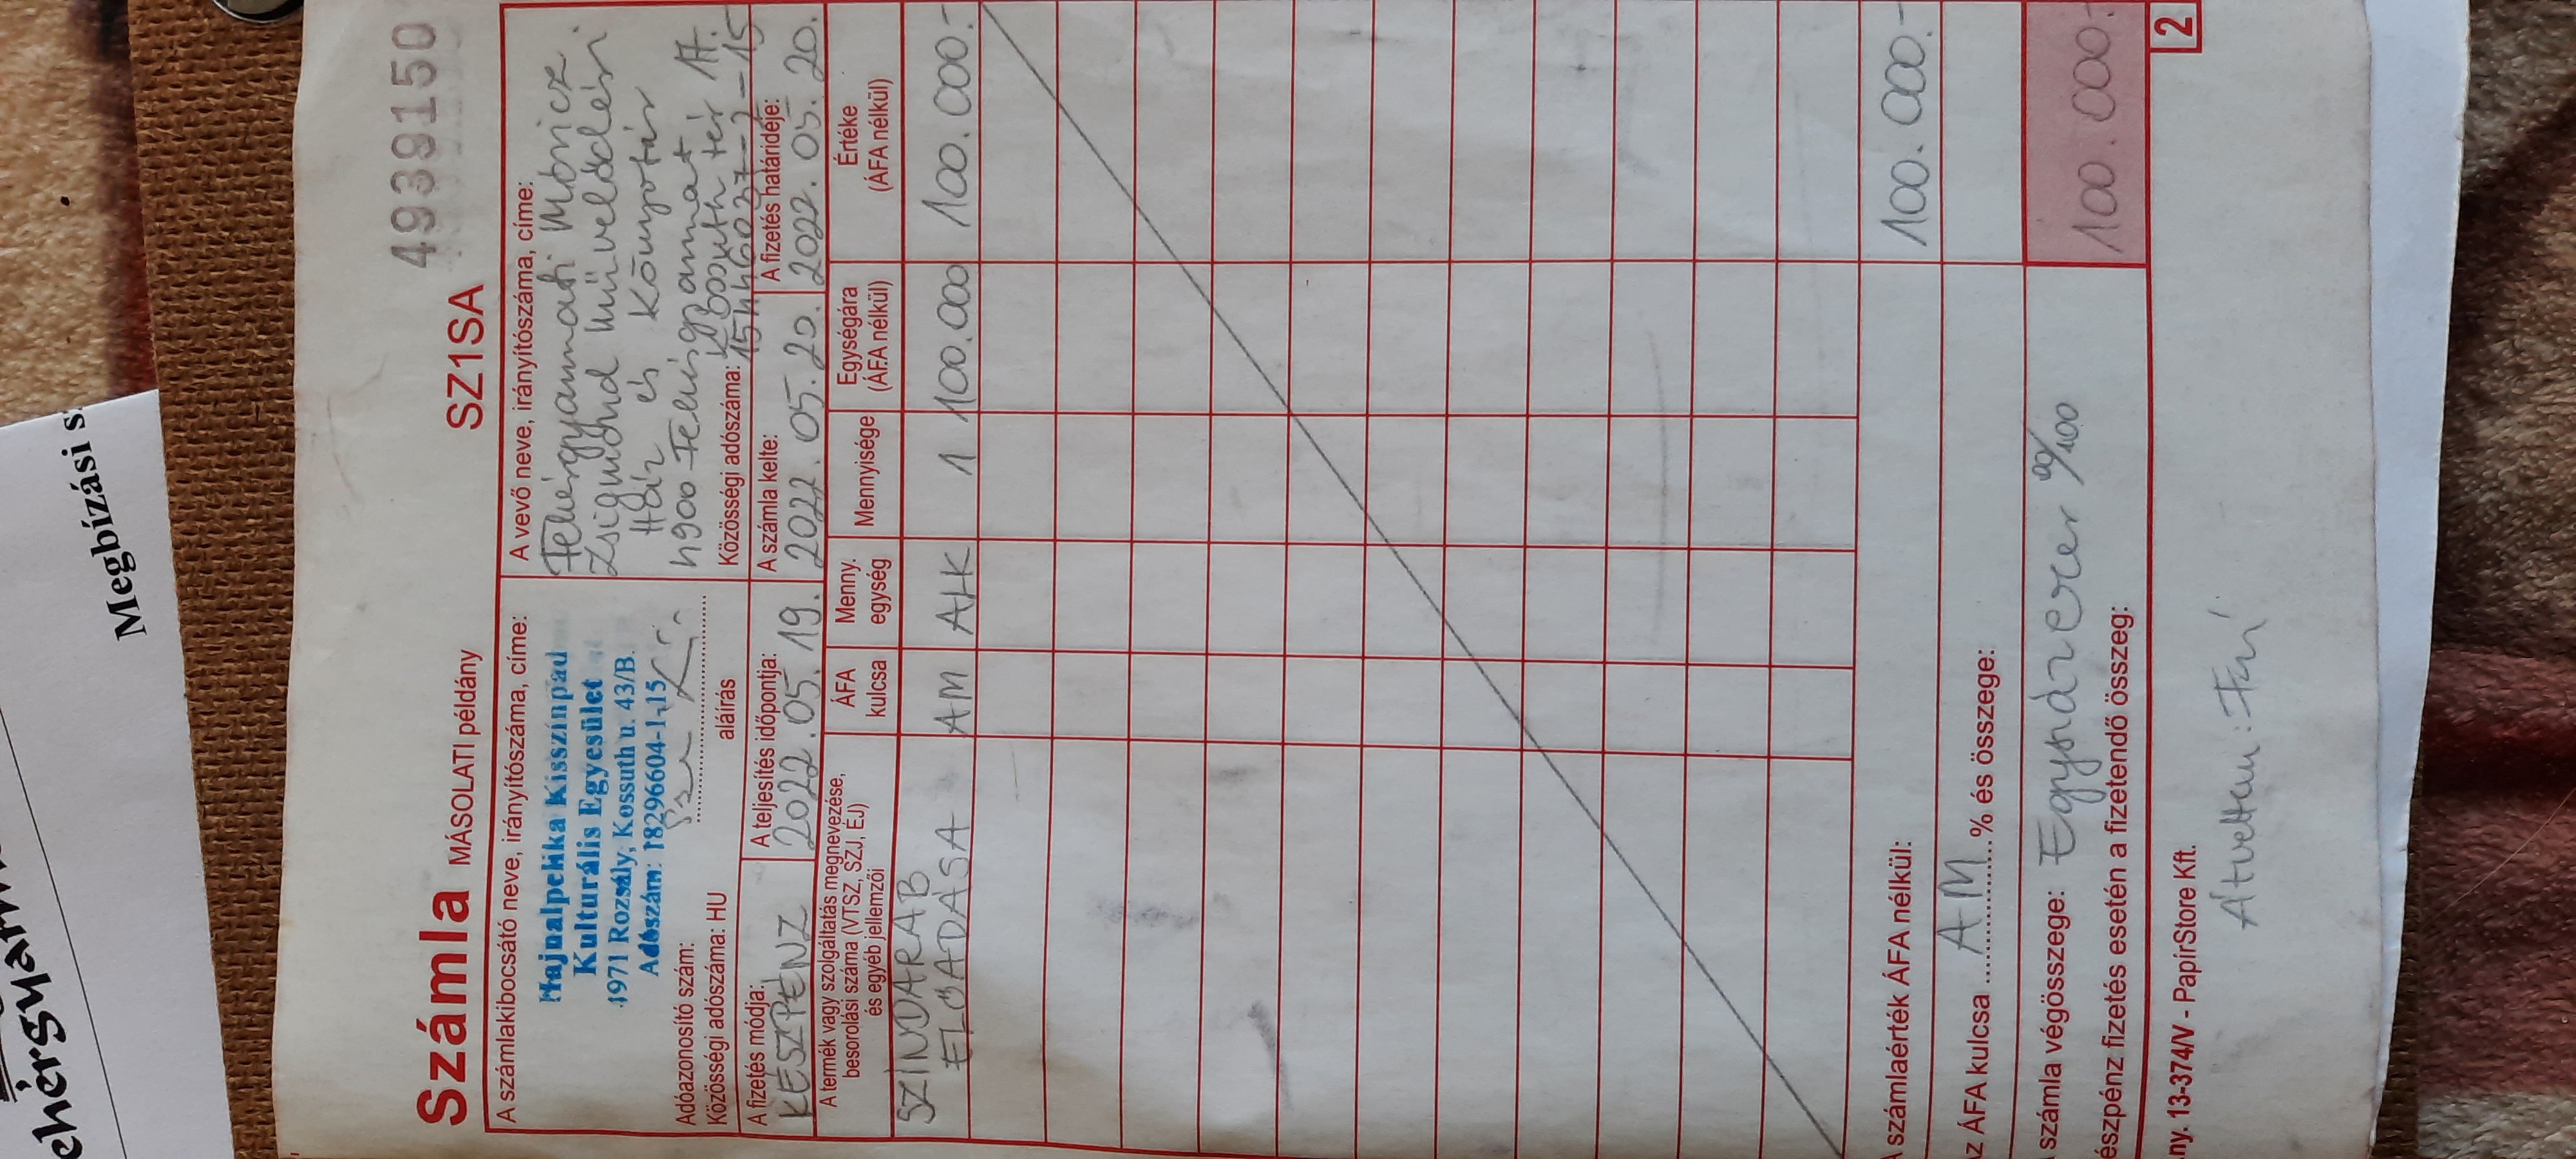 ehérgyarm
Megbízási s
4939150
Számla MÁSOLATI példány SZ1SA
A számlakibocsátó neve, irányítószáma, címe:
Hajnalpelika Kisszínpad
Kulturális Egyesület
4971 Rozsály, Kossuth u. 43/B.
Adószám: 18296604-1-15
Adóazonosító szám:
Közösségi adószáma: HU
aláírás
A vevő neve, irányítószáma, címe:
Fehérgyarmati Móricz
Zsigmond Művelődési
Ház és Könyvtár
4900 Fehérgyarmat,
Kossuth tér 17.
Közösségi adószáma: 15446037-2-15
A fizetés módja: A teljesítés időpontja: A számla kelte: A fizetés határideje:
KÉSZPÉNZ 2022.05.19. 2022.05.20. 2022.05.20.
A termék vagy szolgáltatás megnevezése,
besorolási száma (VTSZ, SZJ, ÉJ)
és egyéb jellemzői
ÁFA
kulcsa
Menny.
egység
Mennyisége
Egységára
(ÁFA nélkül)
Értéke
(ÁFA nélkül)
SZÍNDARAB
ELŐADÁSA AM ALK 1 100.000 100.000.-
A számlaérték ÁFA nélkül: 100.000.-
az ÁFA kulcsa AM % és összege:
A számla végösszege: Egyszázezer 00/100
észpénz fizetés esetén a fizetendő összeg: 100.000.-
.ny. 13-374/V - PapírStore Kft.
2
Átvettem: